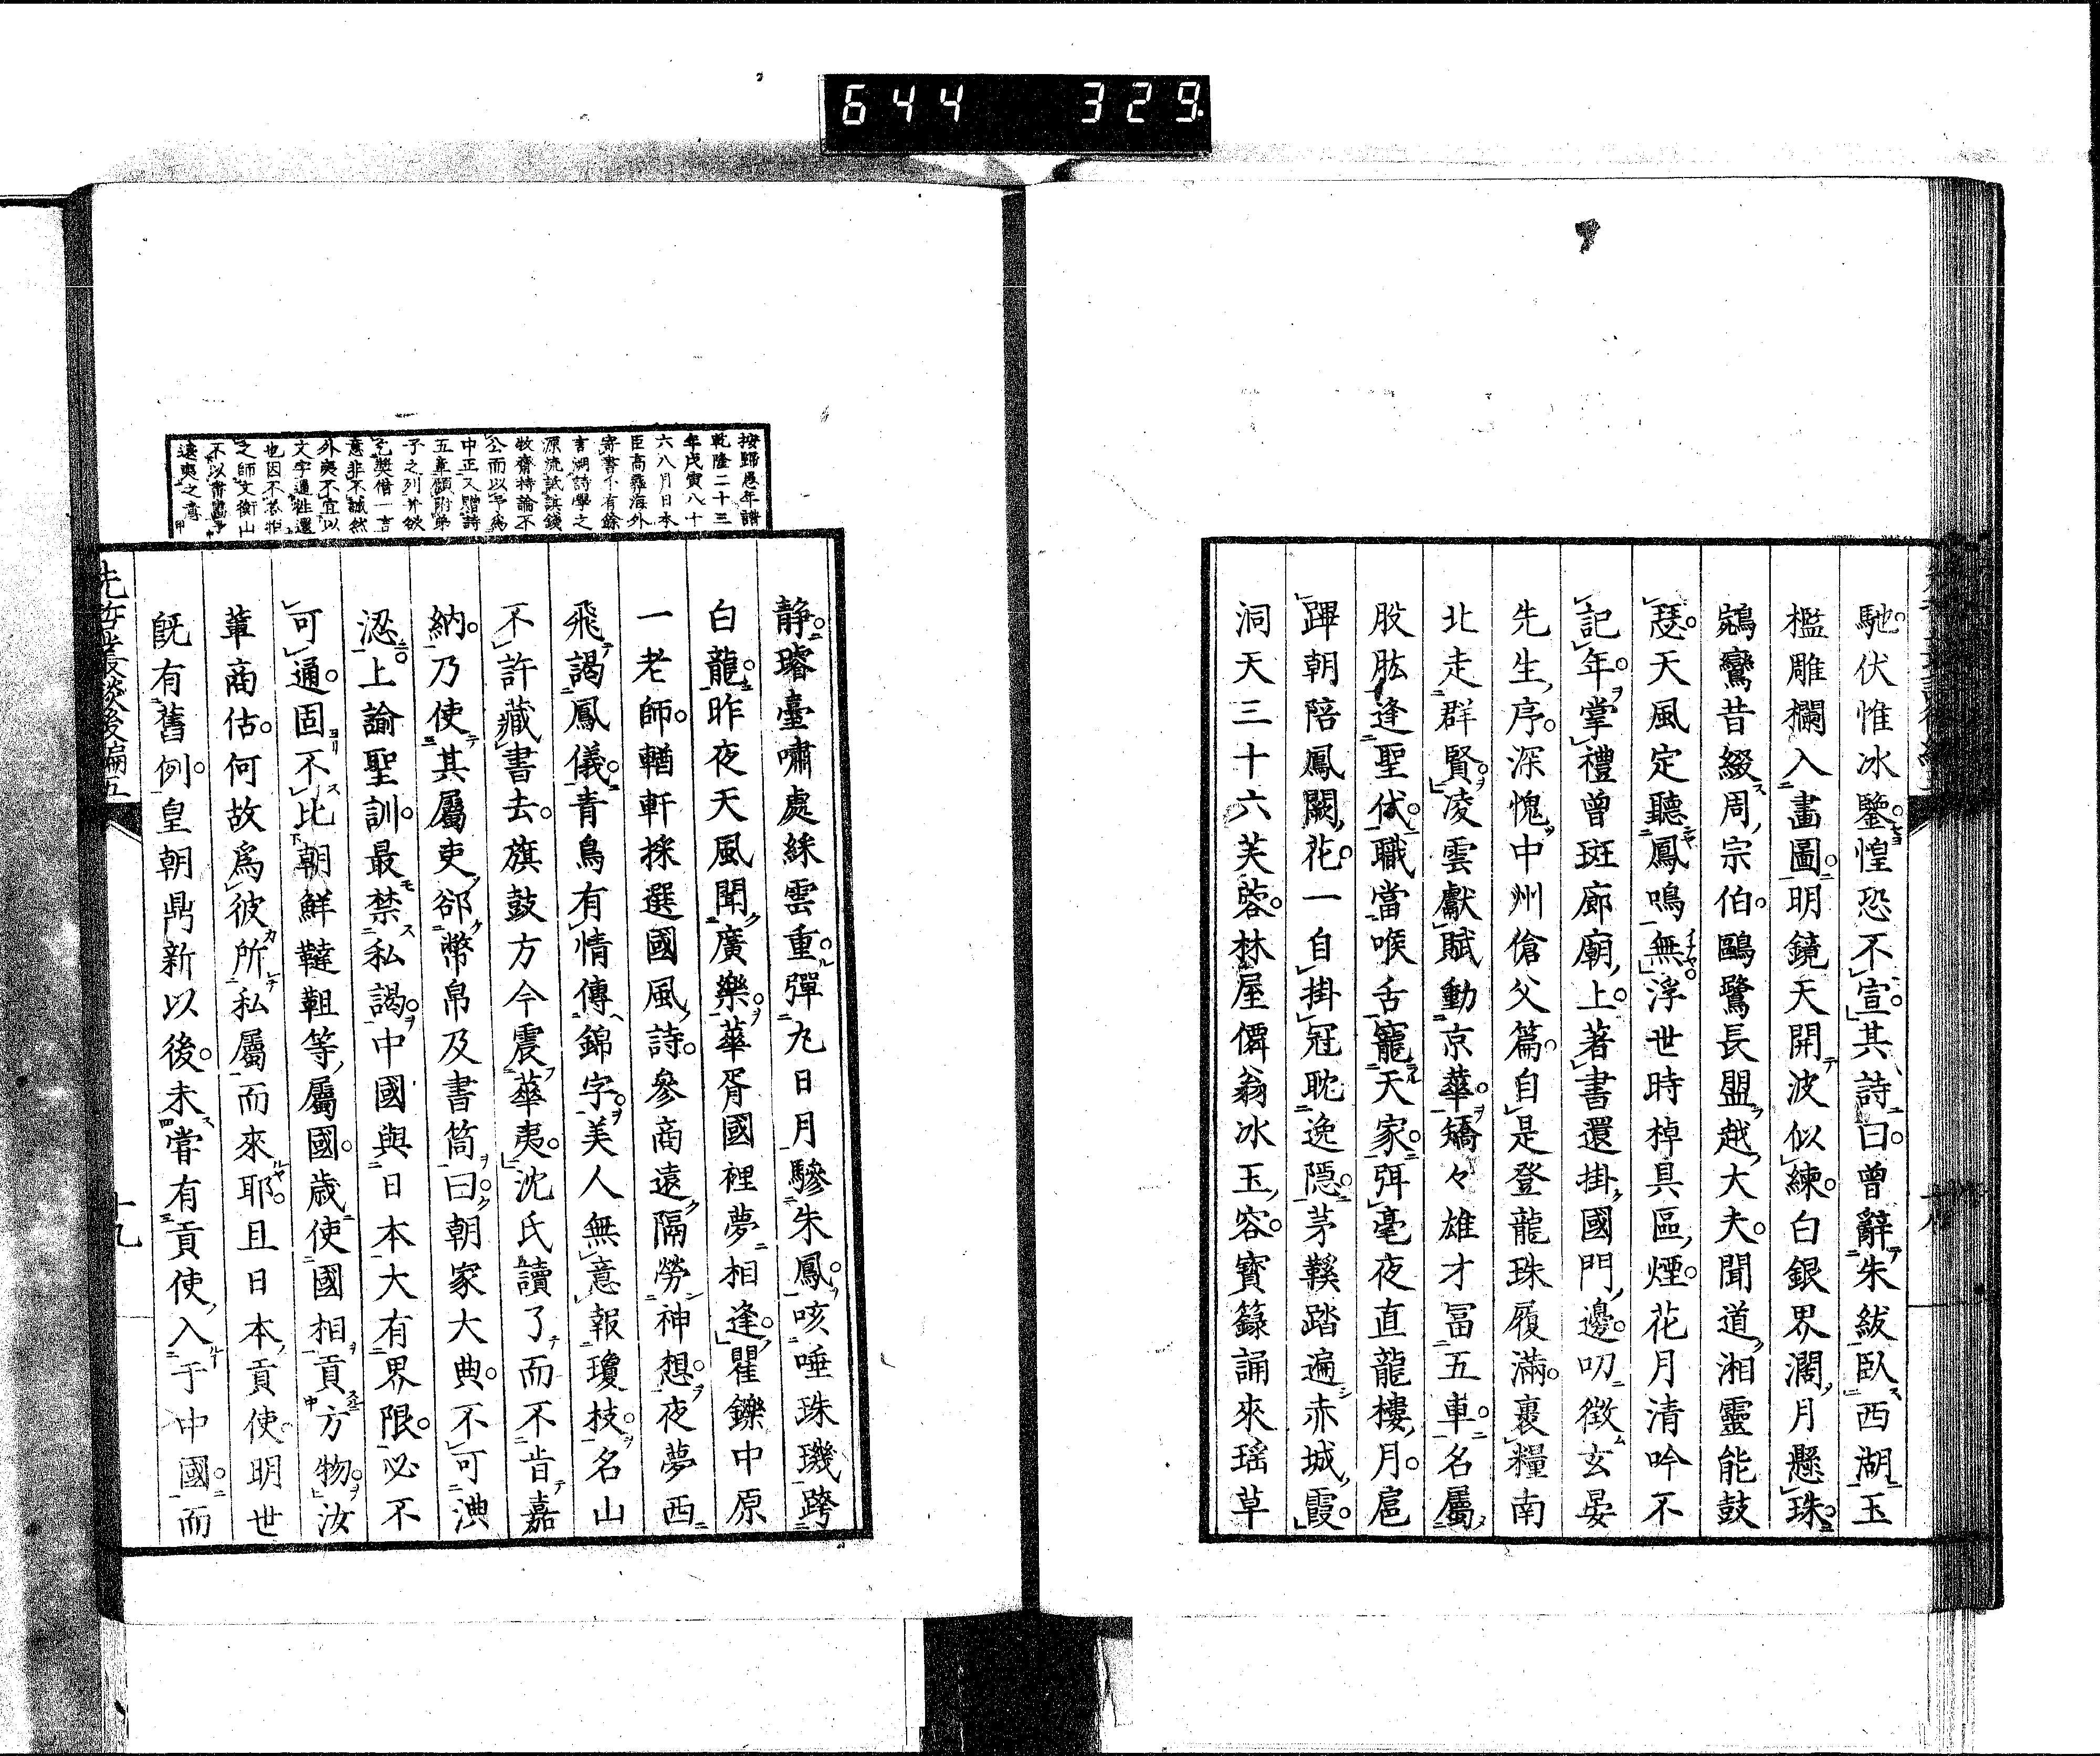 644 329
馳伏惟冰鑒惶恐不宣其詩曰曾辭朱紱臥西湖玉
檻雕欄入畫圖明鏡天開波似練白銀界濶月懸珠
鵷鸞昔綴周宗伯鷗鷺長盟越大夫聞道湘靈能鼓
瑟天風定聽鳳鳴無浮世時棹具區煙花月清吟不
記年掌禮曾班廊廟上著書還掛國門邊叨徴玄晏
先生序深愧中州傖父篇自是登龍珠履滿裹糧南
北走群賢凌雲獻賦動京華矯々雄才冨五車名屬
股肱逢聖代職當喉舌寵天家弭毫夜直龍樓月扈
蹕朝陪鳳闕花一自掛冠耽逸隱茅鞵踏遍赤城霞
洞天三十六芙蓉林屋僊翁冰玉容寳籙誦來瑶草
靜璿臺嘯處綵雲重彈丸日月驂朱鳳咳唾珠璣跨
白龍昨夜天風聞廣樂華胥國裡夢相逢矍鑠中原
一老師輶軒採選國風詩參商遠隔勞神想夜夢西
飛謁鳳儀青鳥有情傳錦字美人無意報瓊枝名山
不許藏書去旗鼓方今震華夷沈氏讀了而不肯嘉
納乃使其屬吏郤幣帛及書筒曰朝家大典不可
涊上諭聖訓最禁私謁中國與日本大有界限必不
可通固不比朝鮮韃靼等屬國歳使國相貢方物汝
輩商估何故爲彼所私屬而來耶且日本貢使明世
既有舊例皇朝鼎新以後未嘗有貢使入于中國而
按歸愚年譜
乾隆二十三
年戊寅八十
六八月日本
臣高彝海外
寄書千有餘
言溯詩學之
源流詆諆錢
牧齋持論不
公而以予爲
中正又贈詩
五章願附弟
子之列并欲
乞奬借一言
意非不誠然
外夷不宜以
文字通往還
也因不答
之師文衡山
不以書畫予
遠夷之意
先哲叢談後編五
十九